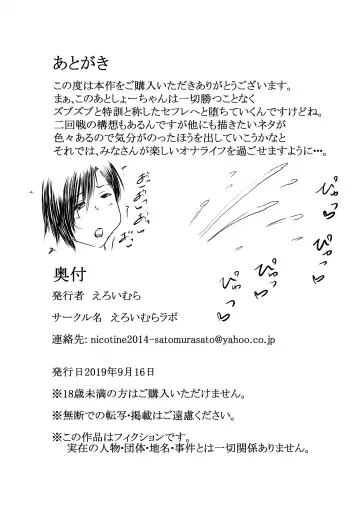 あとがき
この度は本作をご購入いただきありがとうございます。
まぁ、このあとしょーちゃんは一切勝つことなく
ズブズブと特訓と称したセフレへと堕ちていくんですけどね。
二回戦の構想もあるんですが他にも描きたいネタが
色々あるので気分がのったほうを出していこうかなと
それでは、みなさんが楽しいオナライフを過ごせますように…。
ぴゅっ
ぴゅっ
ぴゅっ
奥付
発行者 えろいむら
サークル名 えろいむらラボ
連絡先: nicotine2014-satomurasato@yahoo.co.jp
発行日2019年9月16日
※18歳未満の方はご購入いただけません。
※無断での転写・掲載はご遠慮ください。
※この作品はフィクションです。
実在の人物・団体・地名・事件とは一切関係ありません。